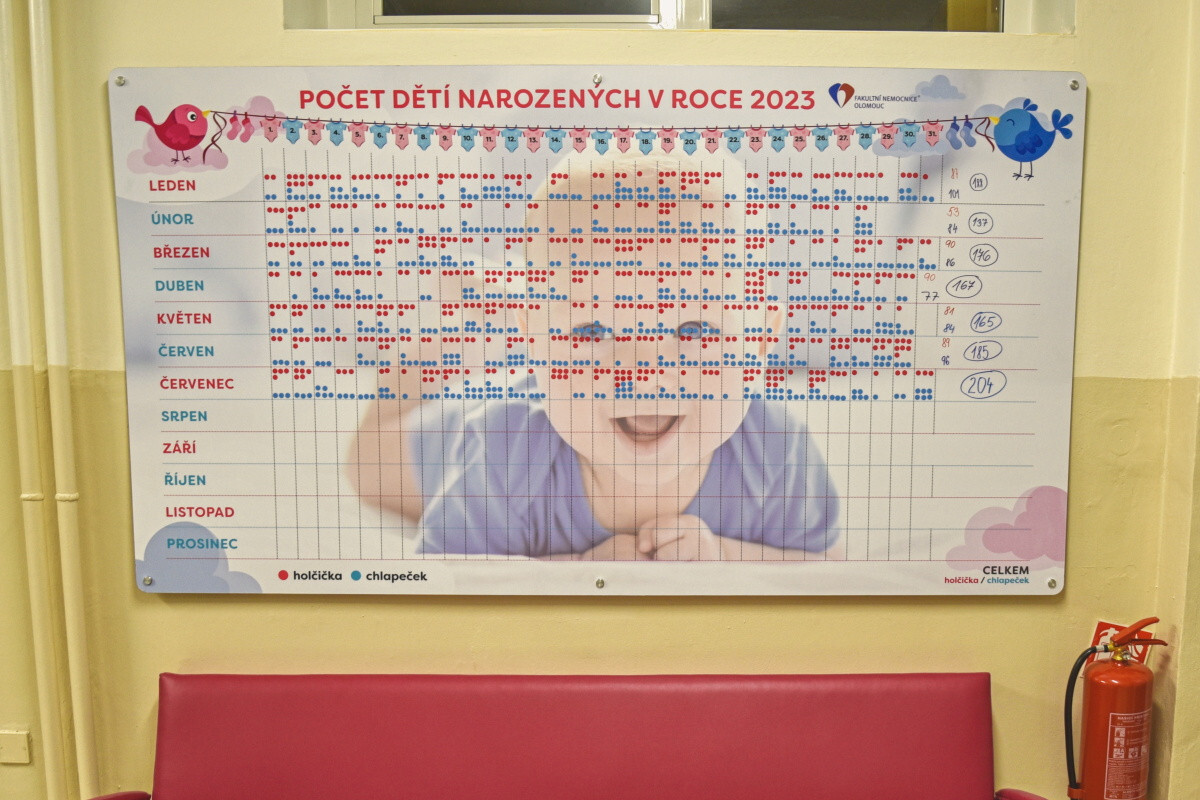 POČET DĚTÍ NAROZENÝCH V ROCE 2023
FAKULTNÍ NEMOCNICE
OLOMOUC
1. 2. 3. 4. 5. 6. 7. 8. 9. 10. 11. 12. 13. 14. 15. 16. 17. 18. 19. 20. 21. 22. 23. 24. 25. 26. 27. 28. 29. 30. 31.
LEDEN 101 188
ÚNOR 53 84 137
BŘEZEN 90 86 176
DUBEN 90 77 167
KVĚTEN 81 84 165
ČERVEN 89 96 185
ČERVENEC 204
SRPEN
ZÁŘÍ
ŘÍJEN
LISTOPAD
PROSINEC
holčička chlapeček
CELKEM
holčička / chlapeček